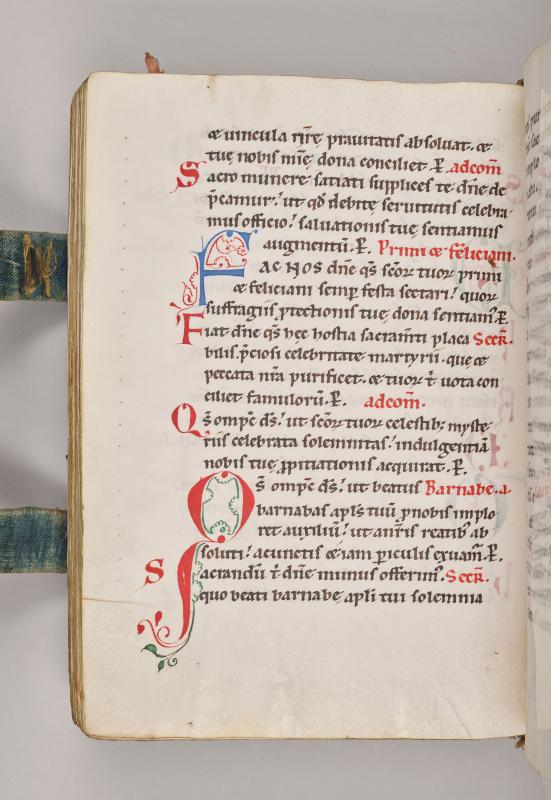 æ vincula nr̄ē pravitatis absolvat. æ
tuę nobis mīę dona conciliet. P̄. adcom̄
Sacro munere satiati supplices te dn̄e de
p̄camur. ut qd̄ debitę servitutis celebra
mus officio. salvationis tuę sentiamus
augmentū. P̄. Primi æ feliciani.
FAC NOS dn̄e qs̄ sc̄or̄ tuor̄ primi
æ feliciani semp̄ festa sectari. quor̄
suffragiis ꝓtectionis tuę dona sentiam᷒. P̄.
Fiat dn̄e qs̄ hęc hostia sacram̄ti placa Secr̄.
bilis. p̄ciosi celebritate martyrū. que æ
peccata nr̄a purificet. æ tuor̄ t̄ vota con
ciliet famulorū. P̄. adcom̄.
Qs̄ omp̄c ds̄. ut sc̄or̄ tuor̄ celestib; myste
riis celebrata solemnitas. indulgentiā
nobis tuę ꝓpitiationis acquirat. P̄.
Qs̄ omp̄c ds̄. ut beatus Barnabe. a.
barnabas apl̄s tuū p̄ nobis implo
ret auxiliū. ut a nr̄is reatib; ab
soluti. a cunctis æiam periculis exuam᷒. P̄.
Sacrandū t̄ dn̄e munus offerim᷒. Secr̄.
S quo beati barnabę apl̄i tui solemnia